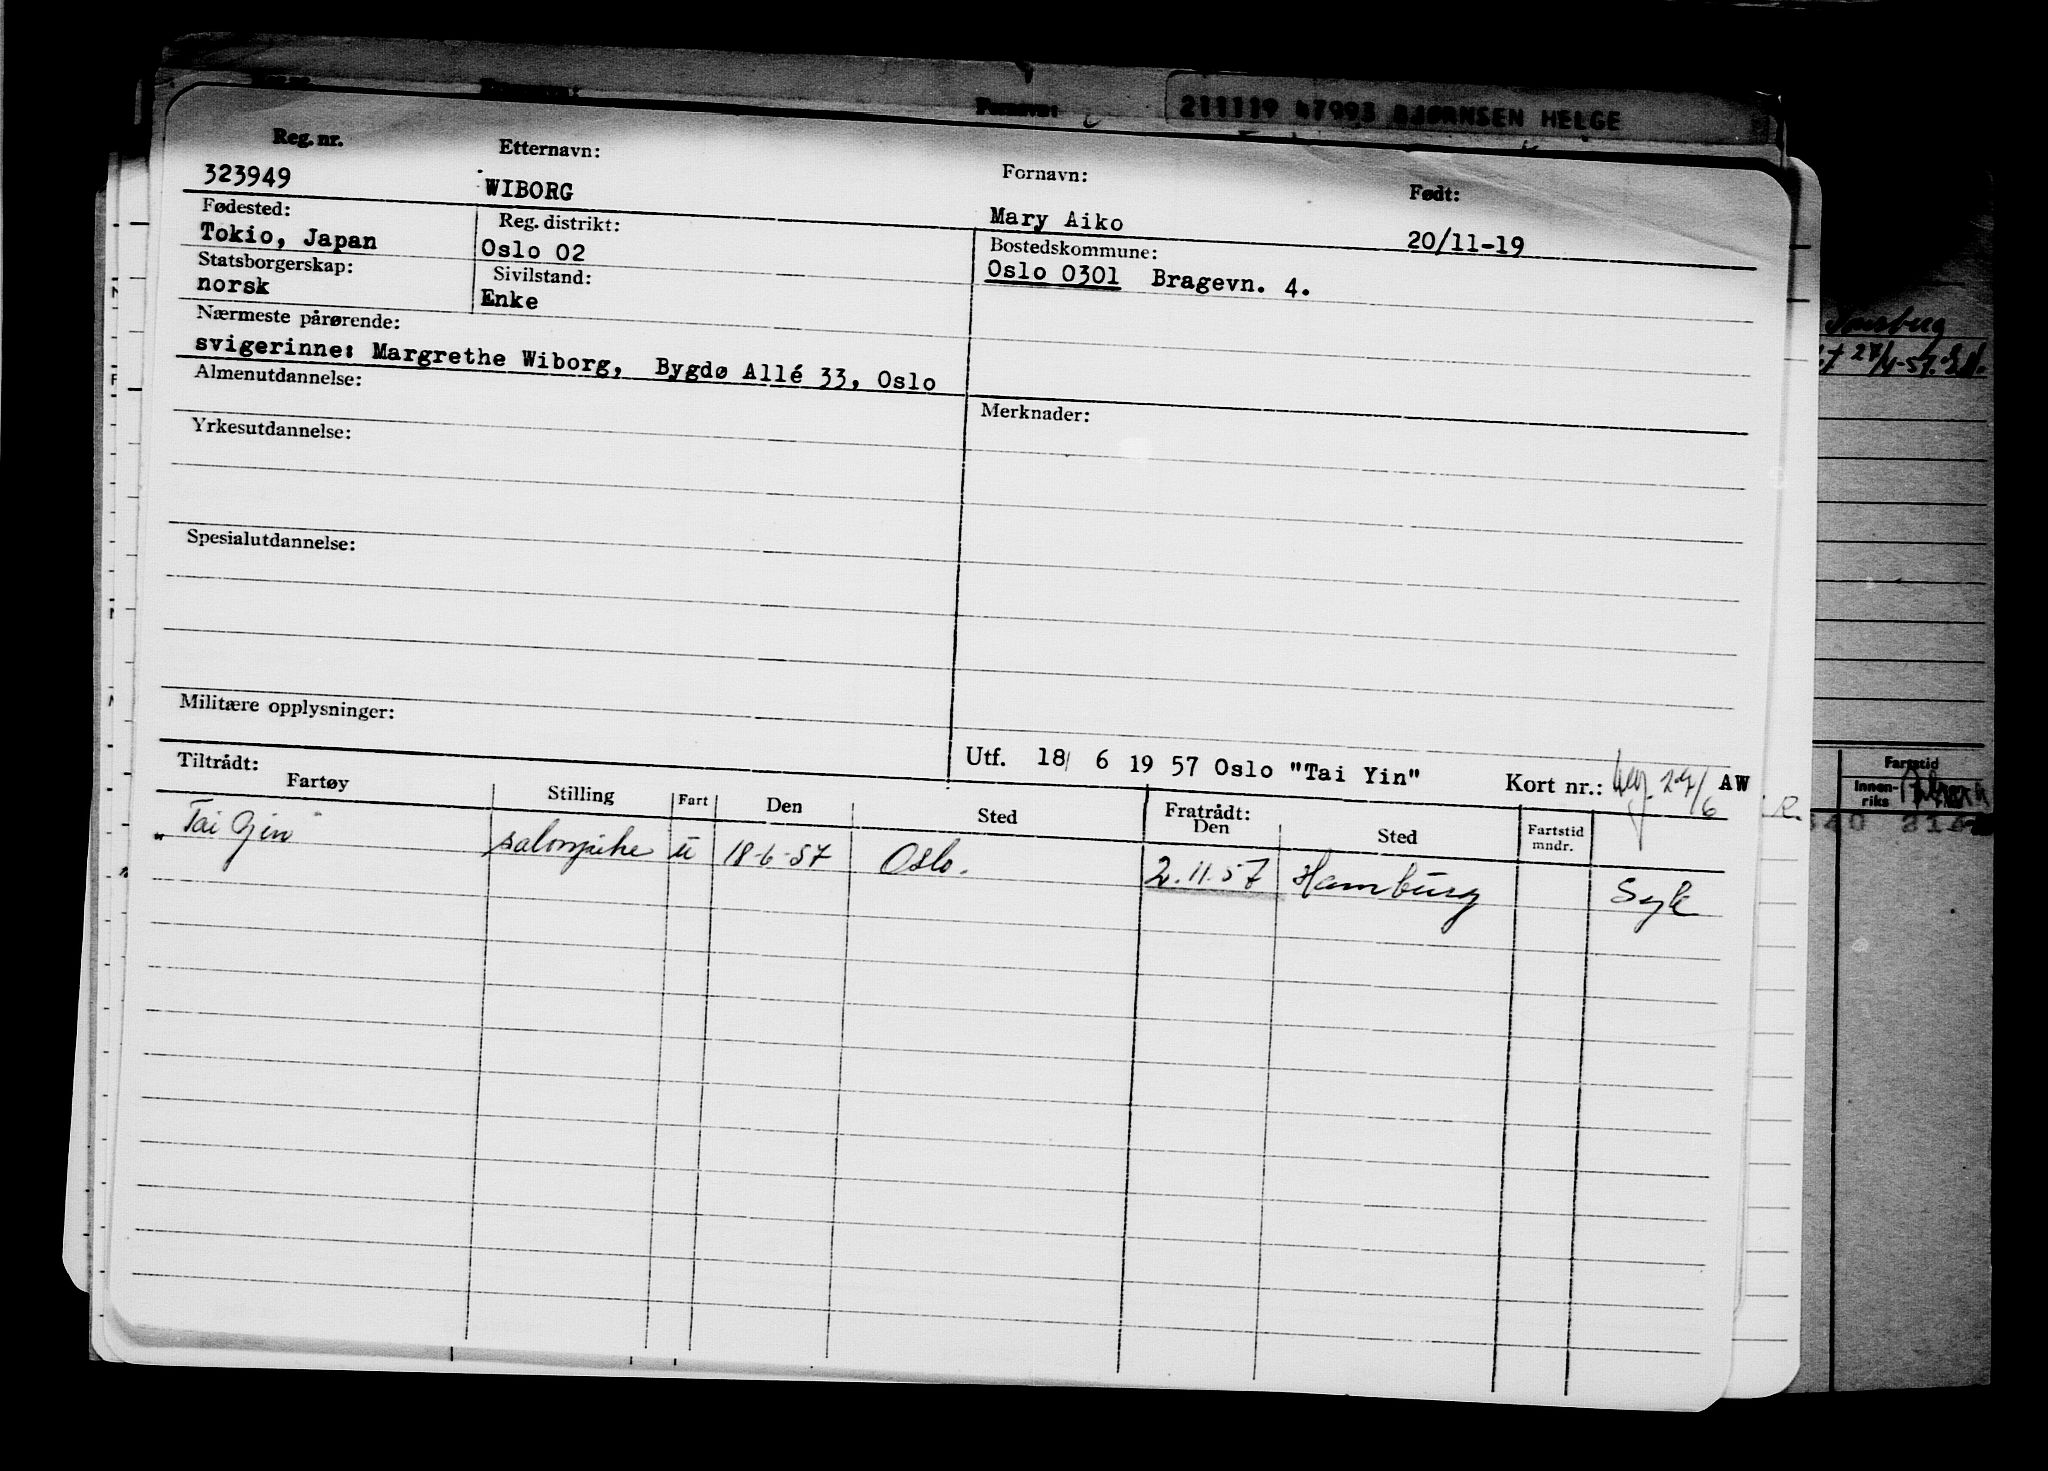 211119 47993 BJØRNSEN HELGE
Fornavn:
Reg. nr. Etternavn: Fornavn: Født:
323949 WIBORG Mary Aiko 20/11-19
Fødested: Reg. distrikt: Bostedskommune:
Tokio, Japan Oslo 02 Oslo 0301 Bragevn. 4.
Statsborgerskap: Sivilstand:
norsk Enke
Nærmeste pårørende:
svigerinne: Margrethe Wiborg, Bygdø Allé 33, Oslo
Almenutdannelse: Merknader:
Yrkesutdannelse:
Spesialutdannelse:
Militære opplysninger:
Utf. 18/ 6 19 57 Oslo "Tai Yin" Kort nr.: 27/6 AW
Tiltrådt: Fratrådt:
Fartøy Stilling Fart Den Sted Den Sted Fartstid mndr.
"Tai Yin" salongpike u 18-6-57 Oslo. 2.11.57 Hamburg Syk
27/4-57.
Fartstid
Innen-
riks
R.